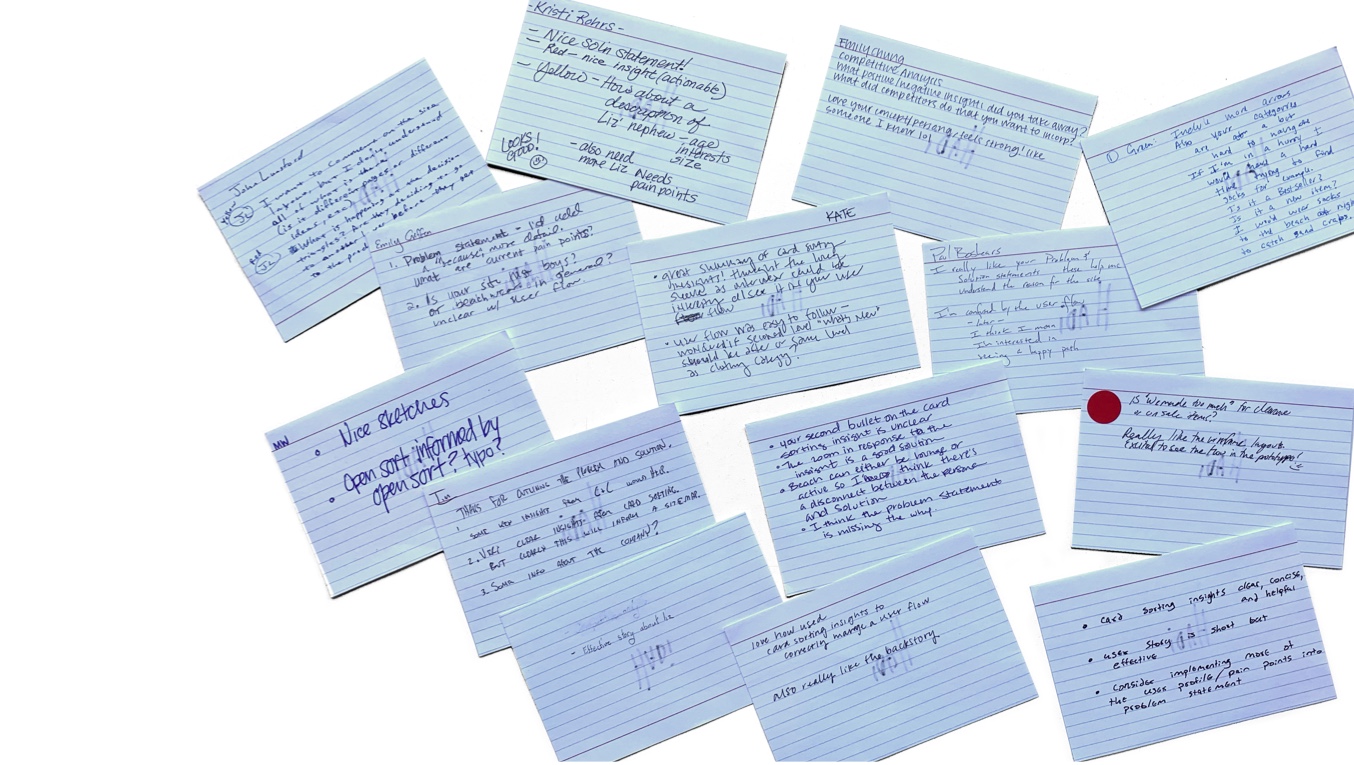 - Kristi Rohrs -
- Nice soln statement!
- Red - nice insight (actionable)
- Yellow - How about a
description of
Liz' nephew - age
interests
size
- also need
more Liz Needs
pain points
LOOKS
GOOD!
Emily Chung
Competitive Analysis
what positive/negative insights did you take away?
what did competitors do that you want to incorp?
Love your concept/persona, feels strong! like
someone I know lol
① Green: Include more arrows
Also your categories
are a bit
hard to navigate
If I'm in a hurry I
would have a hard
time trying to find
socks for example.
Is it a Bestseller?
Is it a new item?
I would wear socks
to the beach at night
to catch sand craps.
I want to comment on the size
all of what is the
(is it different for different
ideas, read pages.
What is happening in the decision
triangles? Are they deciding to go
to another item before they get
to the prod
Emily Griffon
1. Problem statement - I'd add
a "because," more detail.
what are current pain points?
2. Is your site just boys?
or beachwear in general?
unclear w/ user flow
KATE
• great summary of card sorting
insights! thought the long
sleeve as
interesting did see it in your user
flow
• User flow was easy to follow -
wondered if second level "what's new"
should be after or same level
as clothing category.
I really like your Problem &
Solution statements - these help me
understand the reason for the site.
I'm confused by the user flow
- later -
I think I mean
I'm interested in
seeing a happy path
MW
• Nice sketches
• Open sort informed by
open sort? typo?
THANKS FOR OUTLINING THE PROBLEM AND SOLUTION.
1. SOME KEY INSIGHT FROM C&C WOULD HELP.
2. VERY CLEAR INSIGHTS FROM CARD SORTING.
BUT CLEARLY THIS WILL INFORM A SITEMAP.
3. SOME INFO ABOUT THE COMPANY?
• your second bullet on the card
sorting insight is unclear
• The zoom in response to the
insight is a good solution
• Beach can either be lounge or
active so I think there's
a disconnect between the persona
and solution
• I think the problem statement
is missing the why.
Is "We made too much" for clearance
or on sale items?
Really like the wireframe layouts
excited to see the flow in the prototype!
- Effective story about liz
love how used
card sorting insights to
correctly manage a user flow
also really like the backstory.
• card sorting insights clear, concise,
and helpful
• user story is short but
effective
• consider implementing more of
the user profile/pain points into
problem statement